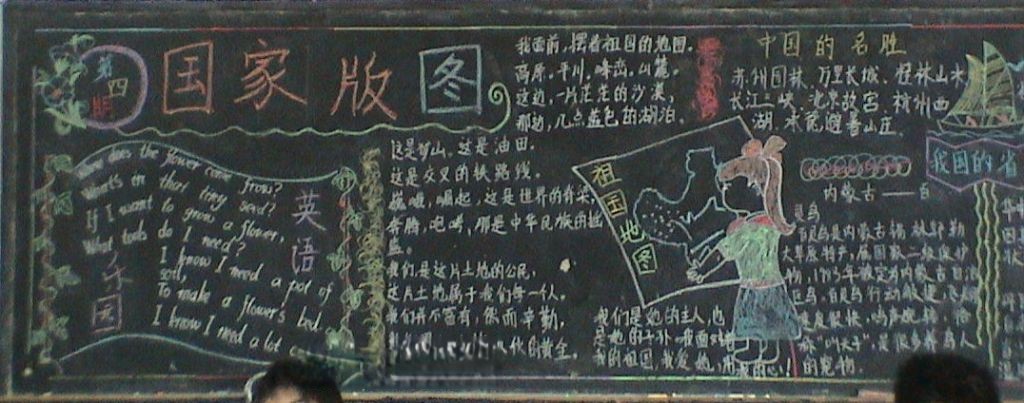 第四版
国家版图
How does the flower come from?
What's in that tiny seed?
If I want to grow a flower,
What tools do I need?
I know I need a pot of
soil,
To make a flower's bed.
I know I need a lot
英语
乐园
我面前,摆着祖国的地图。
高原。平川,峰峦,山麓。
这边,一片茫茫的沙漠,
那边,几点蓝色的湖泊。
这是矿山,这是油田。
这是交叉的铁路线。
巍峨,崛起,这是世界的脊梁,
奔腾,咆哮,那是中华民族的
我们是这片土地的公民,
这片土地属于我们每一个人。
我们并不富有,然而辛勤,
的黄金。
我们是她的主人,也
是她的
我的祖国,我爱她,用我的心!
祖国地图
中国的名胜
苏州园林、万里长城、桂林山水
长江三峡、北京故宫、杭州西
湖、承德避暑山庄。
内蒙古——百
灵鸟
百灵鸟是内蒙古锡林郭勒
大草原特产,属国家二级保护
定为内蒙古自治
区鸟。百灵鸟行动敏捷,
速度很快,鸣声
"叫天子",是很多养鸟人
的宠物。
我国的省